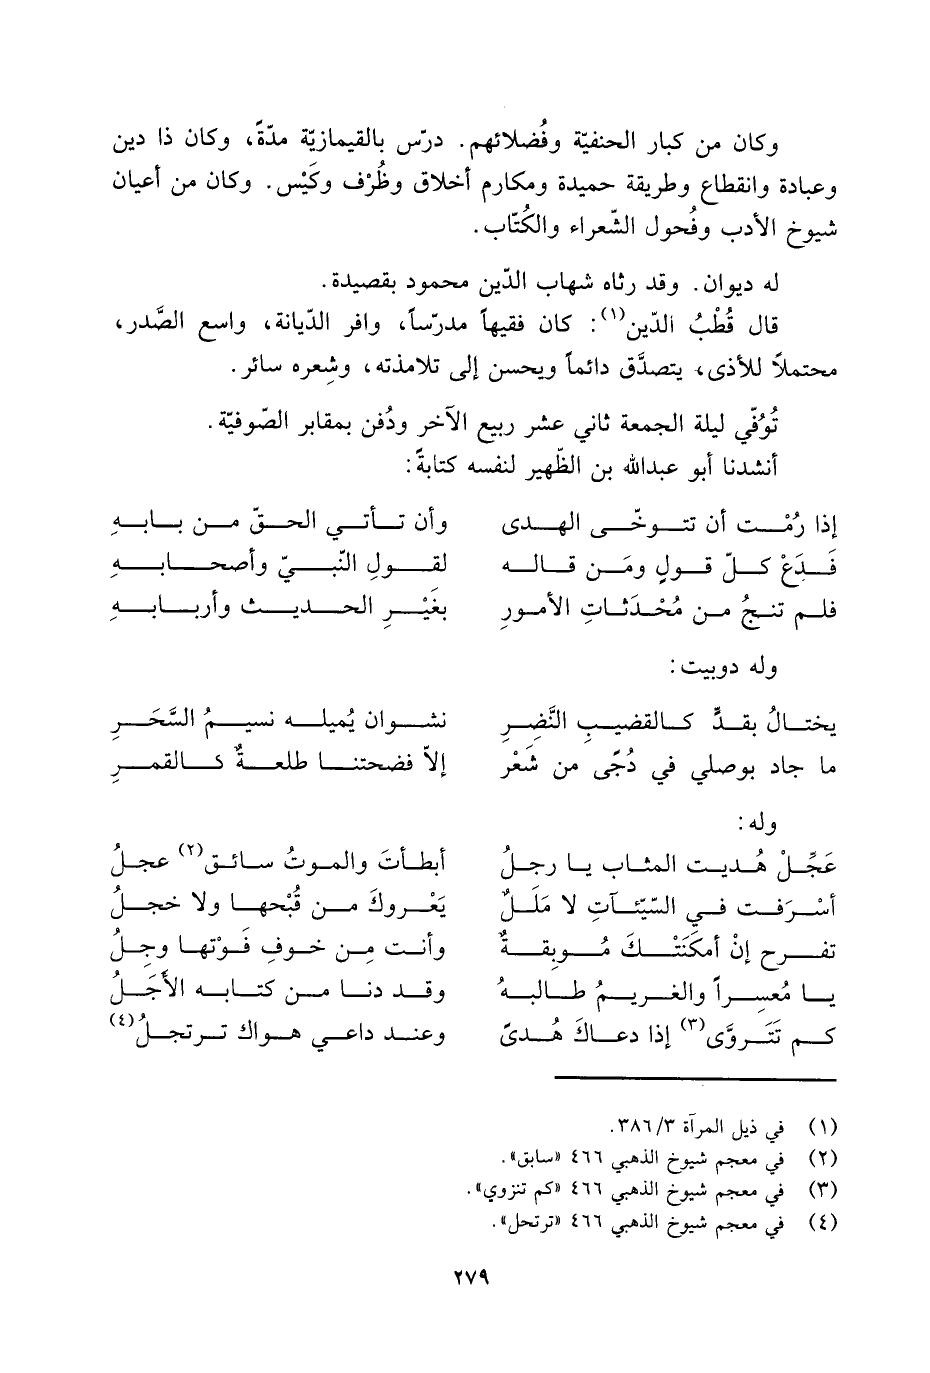 وكان من كبار الحنفيّة وفُضلائهم. درّس بالقيمازيّة مدّةً، وكان ذا دين
وعبادة وانقطاع وطريقة حميدة ومكارم أخلاق وظُرْف وكَيْس. وكان من أعيان
شيوخ الأدب وفُحول الشّعراء والكُتّاب.
له ديوان. وقد رثاه شهاب الدّين محمود بقصيدة.
قال قُطْبُ الدّين(١): كان فقيهاً مدرّساً، وافر الدّيانة، واسع الصَّدر،
محتملاً للأذى، يتصدَّق دائماً ويحسن إلى تلامذته، وشِعره سائر.
تُوُفّي ليلة الجمعة ثاني عشر ربيع الآخر ودُفن بمقابر الصّوفيّة.
أنشدنا أبو عبدالله بن الظّهير لنفسه كتابةً:
إذا رُمْت أن تتوخّى الهدى وأن تأتي الحقّ من بابهِ
فَدَعْ كلّ قولٍ ومَن قاله لقولِ النّبيّ وأصحابهِ
فلم تنجُ من مُحْدَثاتِ الأمورِ بغَيْرِ الحديث وأربابهِ
وله دوبيت:
يختالُ بقدٍّ كالقضيبِ النَّضِرِ نشوان يُميله نسيمُ السَّحَرِ
ما جاد بوصلي في دُجًى من شَعْرِ إلاّ فضحتنا طلعةٌ كالقمرِ
وله:
عَجِّلْ هُديت المثاب يا رجلُ أبطأتَ والموتُ سائق(٢) عجلُ
أسْرَفت في السّيّآتِ لا مَلَلٌ يَعْروكَ من قُبْحها ولا خجلُ
تفرح إنْ أمكَنَتْكَ مُوبِقةٌ وأنت مِن خوفِ فَوْتها وجِلُ
يا مُعسِراً والغريمُ طالبهُ وقد دنا من كتابه الأجَلُ
كم تَتَروَّى(٣) إذا دعاكَ هُدىً وعند داعي هواك ترتجلُ(٤)
(١) في ذيل المرآة ٣/ ٣٨٦.
(٢) في معجم شيوخ الذهبي ٤٦٦ «سابق».
(٣) في معجم شيوخ الذهبي ٤٦٦ «كم تنزوي».
(٤) في معجم شيوخ الذهبي ٤٦٦ «ترتحل».
٢٧٩